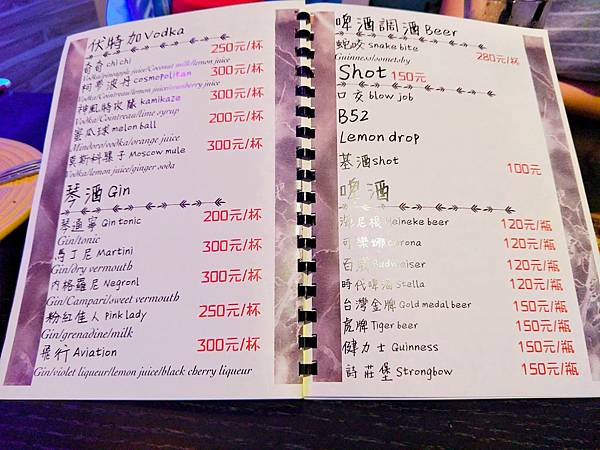 伏特加Vodka
奇奇 chi chi 250元/杯
Vodka/pineapple juice/Coconut milk/lemon juice
柯夢波丹 cosmopolitan 300元/杯
Vodka/Cointreau/lemon juice/cranberry juice
神風特攻隊 kamikaze 300元/杯
Vodka/Cointreau/lime syrup
蜜瓜球 melon ball 200元/杯
Mendoro/vodka/orange juice
莫斯科騾子 Moscow mule 300元/杯
Vodka/lemon juice/ginger soda
琴酒 Gin
琴通寧 Gin tonic 200元/杯
Gin/tonic
馬丁尼 Martini 300元/杯
Gin/dry vermouth
內格羅尼 Negroni 300元/杯
Gin/Campari/sweet vermouth
粉紅佳人 Pink lady 250元/杯
Gin/grenadine/milk
飛行 Aviation 300元/杯
Gin/violet liqueur/lemon juice/black cherry liqueur
啤酒調酒 Beer
蛇咬 snake bite 280元/杯
Guinness/sometsby
Shot 150元
口交 blow job
B52
Lemon drop
基酒shot 100元
啤酒
海尼根 Heineke beer 120元/瓶
可樂娜 corona 120元/瓶
百威 Budwaiser 120元/瓶
時代啤酒 Stella 120元/瓶
台灣金牌 Gold medal beer 150元/瓶
虎牌 Tiger beer 150元/瓶
健力士 Guinness 150元/瓶
詩莊堡 Strongbow 150元/瓶